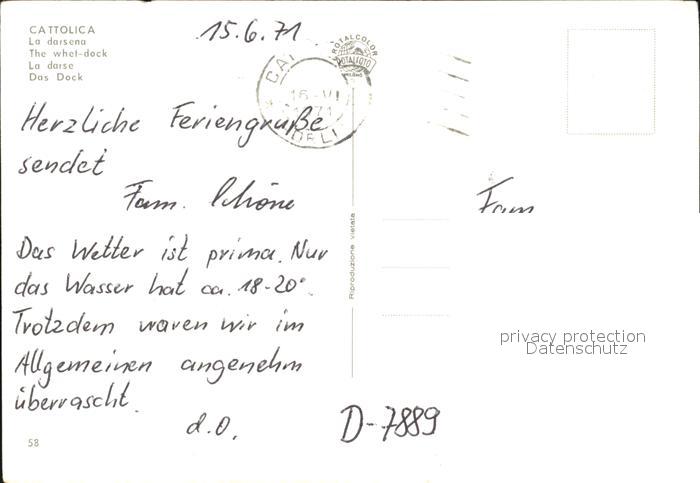 CATTOLICA
La darsena
The whet-dock
La darse
Das Dock
15.6.71
ROTALCOLOR
ROTALFOTO
MILANO
16-VI
71
Herzliche Feriengruße
sendet
Fam. Schöne
Fam
Das Wetter ist prima. Nur
das Wasser hat ca. 18-20°.
Trotzdem waren wir im
Allgemeinen angenehm
überrascht.
d.O.
Riproduzione vietata
privacy protection
Datenschutz
D-7889
58